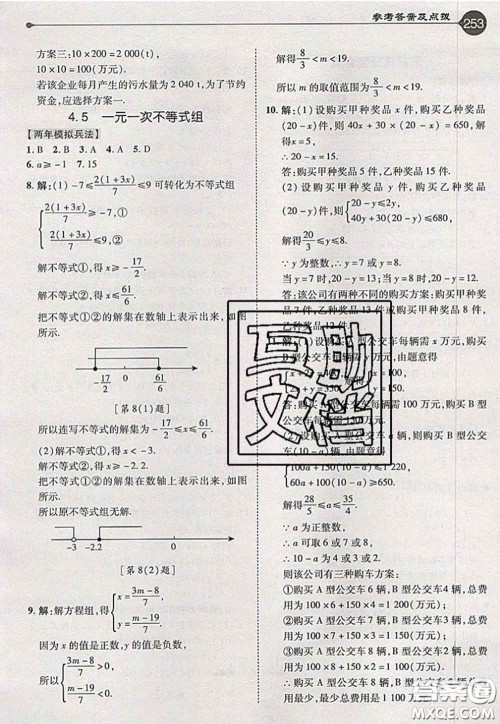 参考答案及点拨
253
方案三:10×200=2 000(t),
10×10=100(万元).
若该企业每月产生的污水量为2 040 t,为了节约
资金,应选择方案一.
4.5 一元一次不等式组
【两年模拟兵法】
1. B 2. B 3. A 4. A 5. D
6. a≥-1 7. 15
8. 解:(1)-7≤2(1+3x)/7≤9可转化为不等式组
{2(1+3x)/7≥-7,①
2(1+3x)/7≤9.②
解不等式①,得x≥-17/2.
解不等式②,得x≤61/6.
把不等式①②的解集在数轴上表示出来,如图
所示.
-17/2 0 61/6
[第8(1)题]
所以连写不等式的解集为-17/2≤x≤61/6.
(2)解不等式①,得x<-3.
解不等式②,得x>-2.2.
把不等式①②的解集在数轴上表示出来,如图
所示.
所以原不等式组无解.
-3 -2.2 0
[第8(2)题]
9. 解:解方程组,得{x=3m-8/7,
y=m-19/7.
因为x的值是正数,y的值是负数,
所以{3m-8/7>0,
m-19/7<0.
解得8/3<m<19.
所以m的取值范围为8/3<m<19.
10. 解:(1)设购买甲种奖品x件,购买乙种奖品
(20-x)件,则40x+30×(20-x)=650,解
得x=5,
∴20-x=15.
答:购买甲种奖品5件,乙种奖品15件.
(2)设购买甲种奖品y件,则购买乙种奖品
(20-y)件,则{20-y≤2y,
40y+30(20-y)≤680,
解得20/3≤y≤8.
∵y为整数,∴y=7或y=8.
当y=7时,20-y=13;当y=8时,20-y=12.
答:该公司有两种不同的购买方案:购买甲种
奖品7件,乙种奖品13件或甲种奖品8件,
乙种奖品12件.
互助
文档
解:(1)设购买A型公交车每辆需x万元,购买
B型公交车每辆需y万元,由题意得
答:购买A型公交车每辆需100万元,购买B型
公交车每辆需150万元.
(2)设购买A型公交车a辆,则购买B型公
交车(10-a)辆,由题意得
{100a+150(10-a)≤1 220,
解得28/5≤a≤35/4.
∵a为正整数,
∴a=6或7或8.
则该公司有三种购车方案:
①购买A型公交车6辆,B型公交车4辆,总费
用为100×6+150×4=1 200(万元);
②购买A型公交车7辆,B型公交车3辆,总费
用为100×7+150×3=1 150(万元);
③购买A型公交车8辆,B型公交车2辆,总费
用为100×8+150×2=1 100(万元).
用最少,最少总费用是1 100万元
答案圈
MXQE.COM